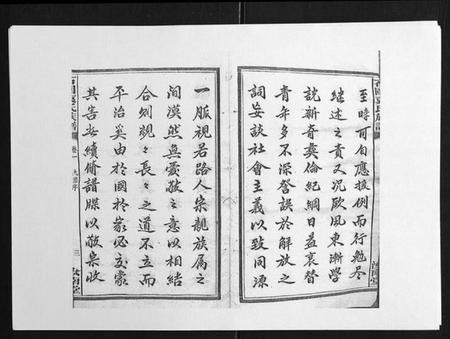 至時可自應援例而行勉尽
继述之責又况欧風東漸學
說新奇彝倫紀綱日益衰替
青年多不深詧誤於解放之
詞妄談社會主義以致同源
一脈視若路人宗親族屬之
間漠然無愛敬之意以相結
合則親々長々之道不立而
平治奚由於國於家必交蒙
其害安續脩譜牒以敬宗收
卷一
三